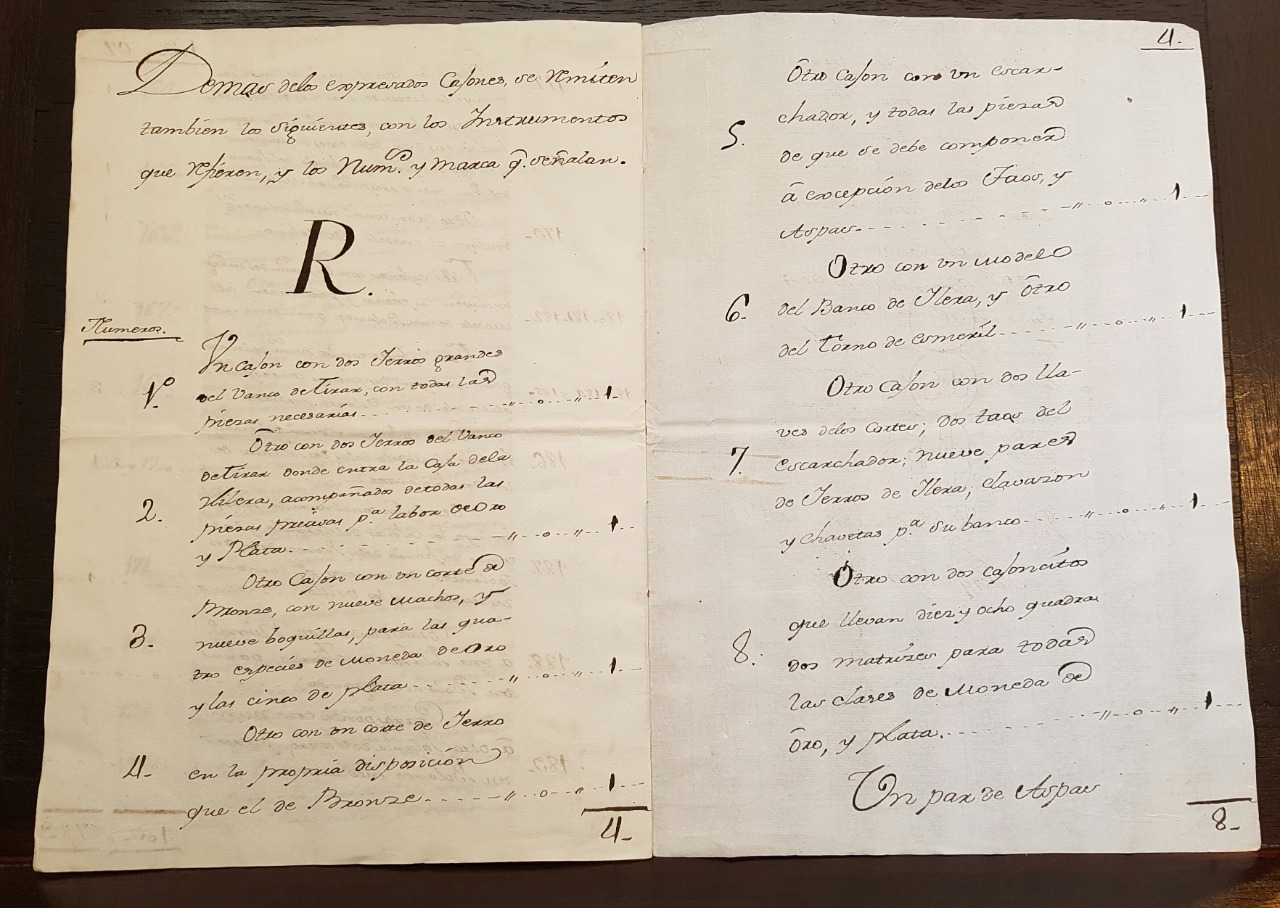 Demas delos expresados Casones, se remiten
tambien los siguientes, con los Instrumentos
que refieren, y los Num.os y marca q.e señalan.
R.
Numeros.
Un Cason con dos Ferros grandes
1.o del Vanco detirar, con todas las
piezas necesarias. - - - " - - o - - " - - 1 - -
Otro con dos Ferros del Vanco
detirar donde entra la Casa dela
2. Hilera, acompañados detodas las
piezas precisas p.a labor de Oro
y Plata. - - - - - - " - - o - - " - - 1 - -
Otro Cason con un corte de
Bronze, con nueve machos, y
3. nueve boquillas, para las qua-
tro especies de moneda de Oro
y las cinco de plata - - - " - - o - - " - - 1 - -
Otro con un corte de Ferro
4. en la propria disposicion
que el de Bronze - - - - " - - o - - " - - 1 - -
4 -
4.
Otro Cason con un escar-
chador, y todas las piezas
5. de que se debe componer
â excepción delos Taos, y
Aspas - - - - - - " - - o - - " - - 1
Otro con un modelo
6. del Banco de Ilera, y ôtro
del torno de esmeril - - - " - - o - - " - - 1
Otro Cason con dos lla-
ves delos Cortes; dos taos del
7. escarchador; nueve pares
de Ferros de Ilera; clavazon
y chavetas p.a su banco - - - " - - o - - " - - 1
Otro con dos casoncitos
que llevan diez y ocho quadra
8. dos matrizes para todas
las clases de moneda de
ôro, y plata. - - - - " - - o - - " - - 1
Un par de Aspas
8 -